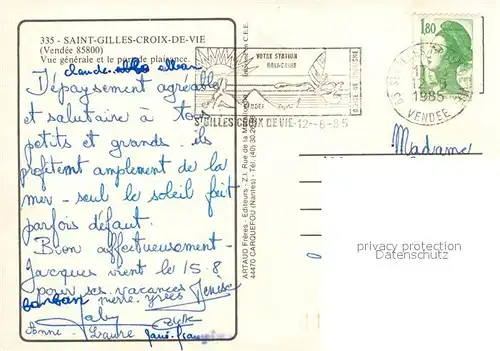 335 - SAINT-GILLES-CROIX-DE-VIE
(Vendée 85800)
Vue générale et le port de plaisance.
claude
Dépaysement agréable
et salutaire à tous
petits et grands. ils
profitent amplement de la
mer - seul le soleil fait
parfois défaut.
Bien affectueusement -
Jacques vient le 15.8
pour ses vacances
barban
Pierre Yves Denise
Gaby
Anne - Laure
VOTRE STATION
BALNEAIRE
VENDEE
ST GILLES CROIX DE VIE -12-8-85
ARTAUD Frères - Editeurs - Z.I. Rue de la Métallurgie
44470 CARQUEFOU (Nantes) - Tél. (40) 30.
C.E.E.
1,80
1985
VENDEE
Madame
privacy protection
Datenschutz